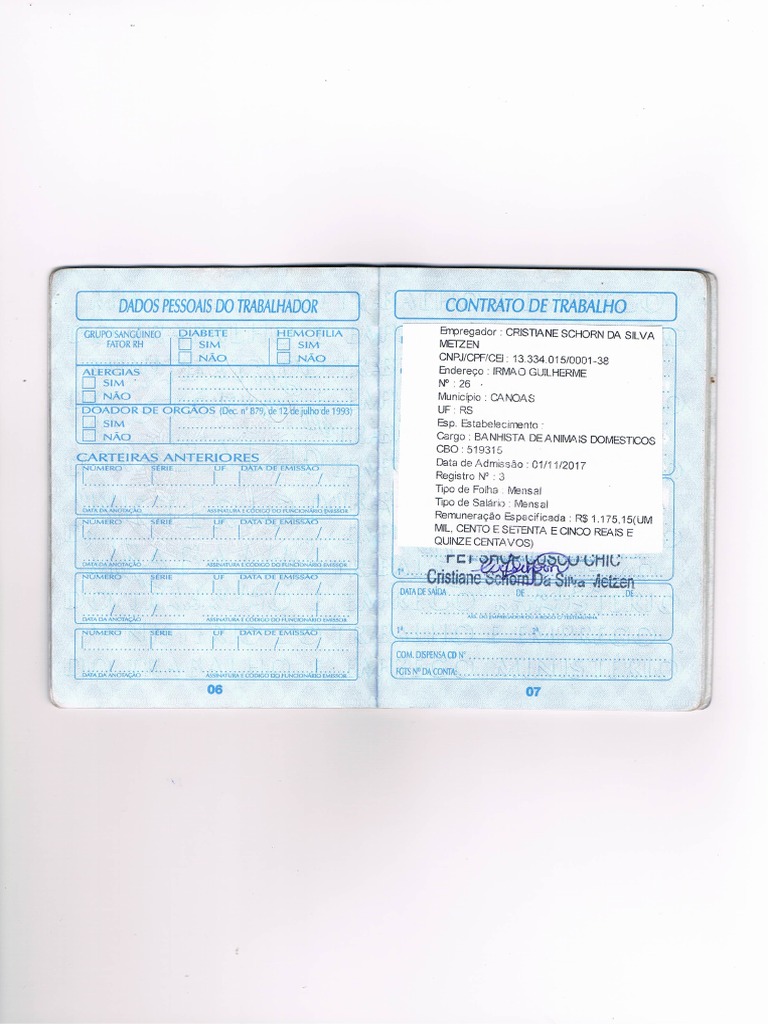 DADOS PESSOAIS DO TRABALHADOR
GRUPO SANGÜINEO
FATOR RH
DIABETE
SIM
NÃO
HEMOFILIA
SIM
NÃO
ALERGIAS
SIM
NÃO
DOADOR DE ORGÃOS (Dec. nº 879, de 12 de julho de 1993)
SIM
NÃO
CARTEIRAS ANTERIORES
NÚMERO SÉRIE UF DATA DE EMISSÃO
DATA DA ANOTAÇÃO ASSINATURA E CÓDIGO DO FUNCIONÁRIO EMISSOR
NÚMERO SÉRIE UF DATA DE EMISSÃO
DATA DA ANOTAÇÃO ASSINATURA E CÓDIGO DO FUNCIONÁRIO EMISSOR
NÚMERO SÉRIE UF DATA DE EMISSÃO
DATA DA ANOTAÇÃO ASSINATURA E CÓDIGO DO FUNCIONÁRIO EMISSOR
NÚMERO SÉRIE UF DATA DE EMISSÃO
DATA DA ANOTAÇÃO ASSINATURA E CÓDIGO DO FUNCIONÁRIO EMISSOR
06
CONTRATO DE TRABALHO
Empregador : CRISTIANE SCHORN DA SILVA
METZEN
CNPJ/CPF/CEI : 13.334.015/0001-38
Endereço : IRMAO GUILHERME
Nº : 26
Município : CANOAS
UF : RS
Esp. Estabelecimento :
Cargo : BANHISTA DE ANIMAIS DOMESTICOS
CBO : 519315
Data de Admissão : 01/11/2017
Registro Nº : 3
Tipo de Folha : Mensal
Tipo de Salário : Mensal
Remuneração Especificada : R$ 1.175,15(UM
MIL, CENTO E SETENTA E CINCO REAIS E
QUINZE CENTAVOS)
PET SHOP CUSCO CHIC
Cristiane Schorn Da Silva Metzen
1ª
DATA DE SAÍDA DE DE
1ª 2ª
COM. DISPENSA CD Nº
FGTS Nº DA CONTA:
07